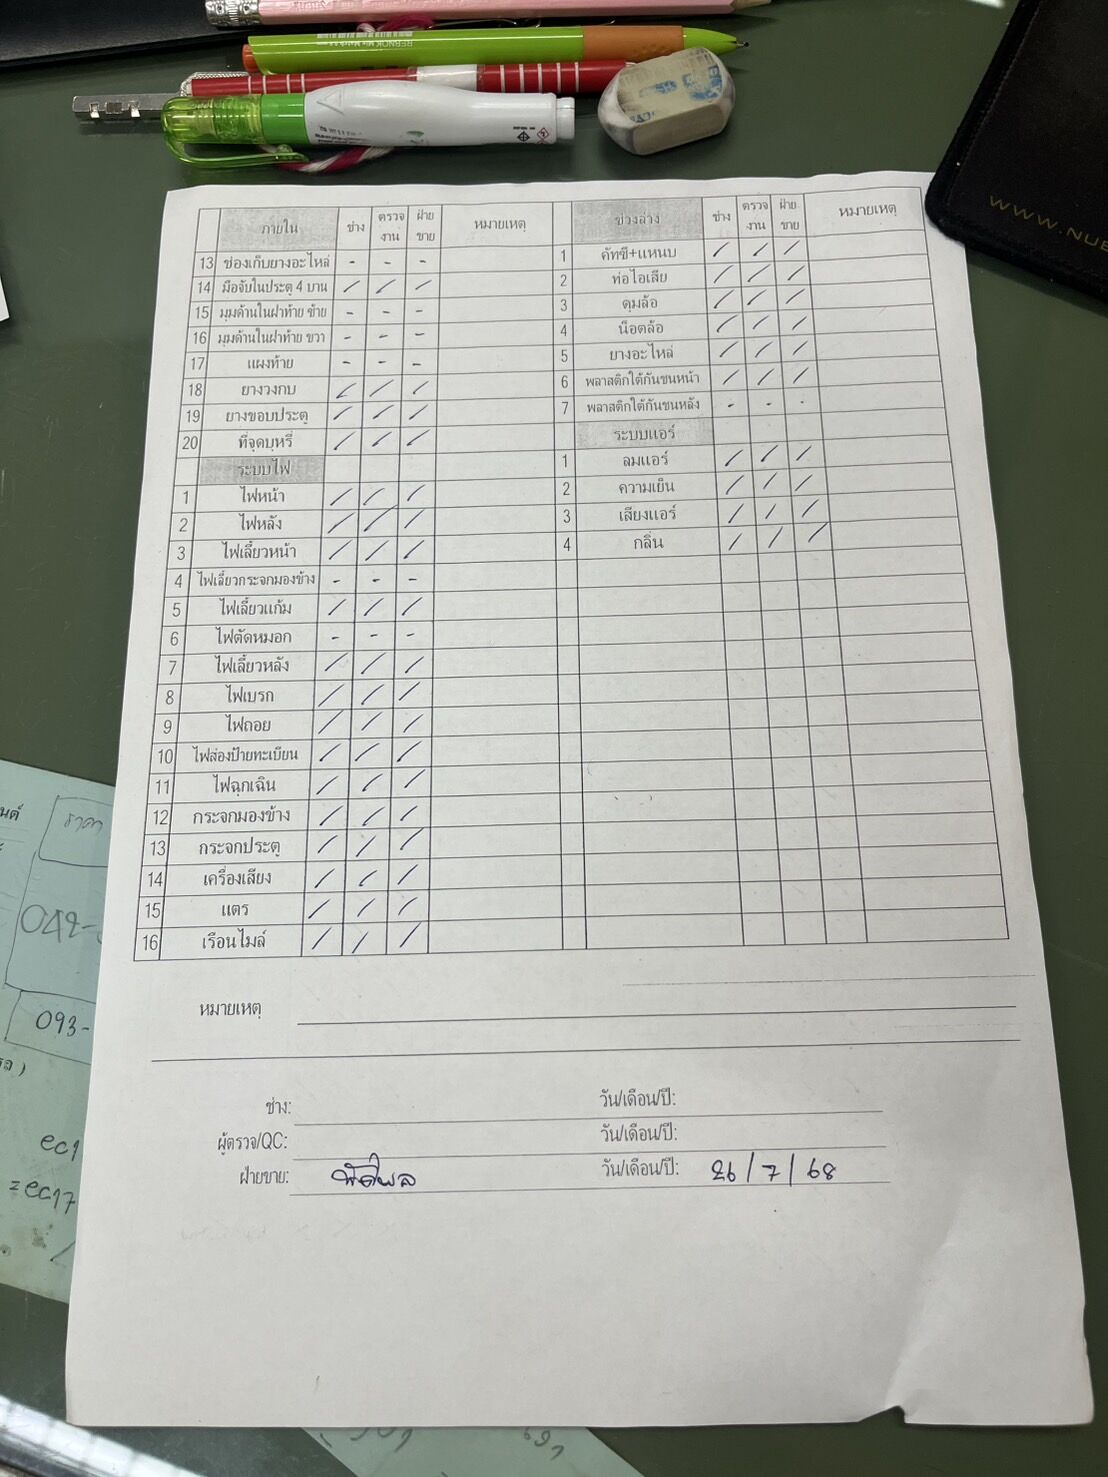 ภายใน ช่าง ตรวจงาน ฝ่ายขาย หมายเหตุ
13 ช่องเก็บยางอะไหล่ - - -
14 มือจับในประตู 4 บาน / / /
15 มุมด้านในฝาท้าย ซ้าย - - -
16 มุมด้านในฝาท้าย ขวา - - -
17 แผงท้าย - - -
18 ยางวงกบ / / /
19 ยางขอบประตู / / /
20 ที่จุดบุหรี่ / / /
ระบบไฟ
1 ไฟหน้า / / /
2 ไฟหลัง / / /
3 ไฟเลี้ยวหน้า / / /
4 ไฟเลี้ยวกระจกมองข้าง - - -
5 ไฟเลี้ยวแก้ม / / /
6 ไฟตัดหมอก - - -
7 ไฟเลี้ยวหลัง / / /
8 ไฟเบรก / / /
9 ไฟถอย / / /
10 ไฟส่องป้ายทะเบียน / / /
11 ไฟฉุกเฉิน / / /
12 กระจกมองข้าง / / /
13 กระจกประตู / / /
14 เครื่องเสียง / / /
15 แตร / / /
16 เรือนไมล์ / / /
ช่วงล่าง ช่าง ตรวจงาน ฝ่ายขาย หมายเหตุ
1 คัทซี+แหนบ / / /
2 ท่อไอเสีย / / /
3 ดุมล้อ / / /
4 น็อตล้อ / / /
5 ยางอะไหล่ / / /
6 พลาสติกใต้กันชนหน้า / / /
7 พลาสติกใต้กันชนหลัง - - -
ระบบแอร์
1 ลมแอร์ / / /
2 ความเย็น / / /
3 เสียงแอร์ / / /
4 กลิ่น / / /
หมายเหตุ
ช่าง: วัน/เดือน/ปี:
ผู้ตรวจ/QC: วัน/เดือน/ปี:
ฝ่ายขาย: วัน/เดือน/ปี: 26/7/68
ราคา
042-
093-
ec1
=ec17
WWW.NUB